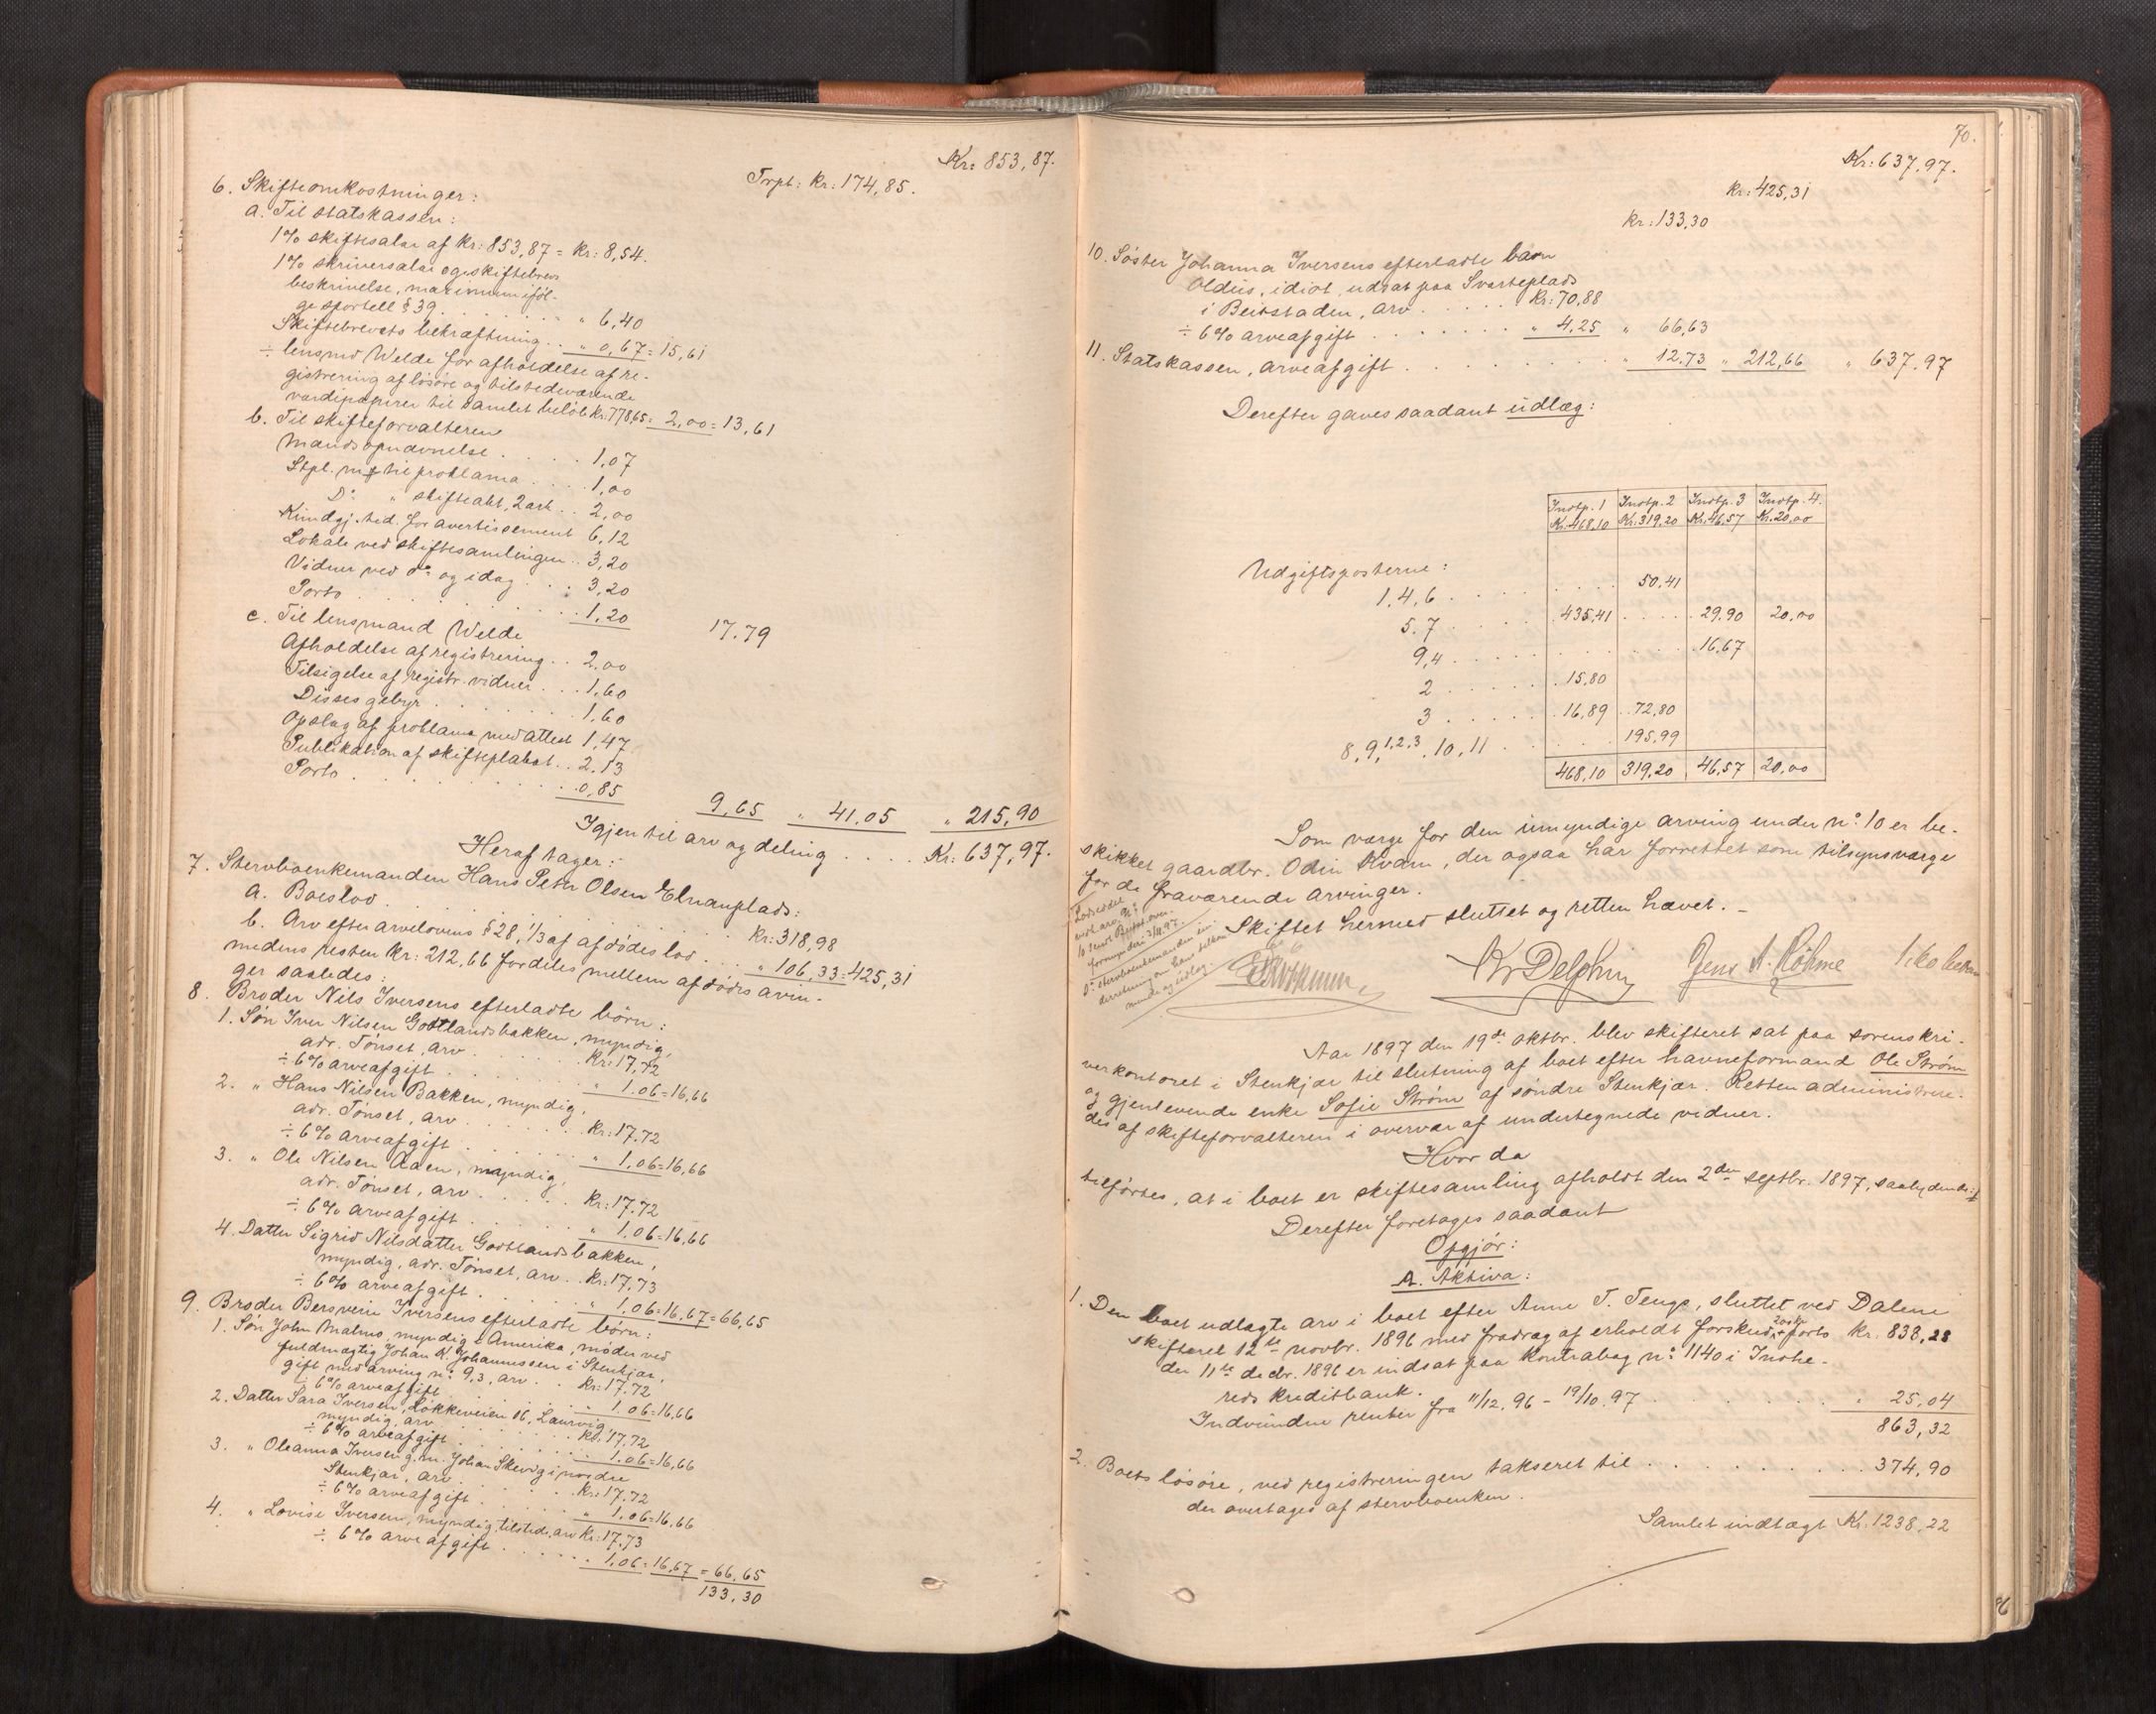 Kr: 853,87.
Trpt: Kr: 174,85.
6. Skifteomkostninger:
a. Til statskassen:
1% skiftesalær af Kr: 853,87 = Kr: 8,54.
1% skriversalær og skiftebrevs
beskrivelse, maximum iföl-
ge sportell § 39 . . . . . . " 6,40
Skiftebrevets bekræftning . . " 0,67 = 15,61
÷ lensmd Welde for afholdelse af re-
gistrering af lösöre og tilstedeværende
værdipapirer til samlet belöb Kr: 778,65 = 2,00 = 13,61
b. Til skifteforvalteren
Mandsopnævnelse . . . . 1,07
Stpl. m/ til proklama . . . 1,00
Do " skifteakt, 2 ark . . 2,00
Kundgj. tid. for avertissement 6,12
Lokale ved skiftesamlingen . . 3,20
Vidner ved do og idag . . . 3,20
Porto . . . . . . . . . . 1,20 17.79
c. Til lensmand Welde
Afholdelse af registrering . . 2,00
Tilsigelse af registr. vidner . . . 1,60
Disses gebyr . . . . . . . 1,60
Opslag af proklama med attest 1,47
Publikation af skifteplakat . . 2,13
Porto . . . . . . . . . . 0,85 9,65 " 41,05 " 215,90
Igjen til arv og deling . . . . Kr: 637,97.
Heraf tager:
7. Stervboenkemanden Hans Peter Olsen Elnanplads:
a. Boeslod . . . . . . . . . . . . Kr: 318,98
b. Arv efter arvelovens § 28, 1/3 af afdödes lod . . . " 106,33 = 425,31
medens resten Kr: 212,66 fordeles mellem afdödes arvin-
ger saaledes:
8. Broder Nils Iversens efterladte börn:
1. Sön Iver Nilsen Godtlandsbakken, myndig,
adr. Tönset, arv . . . . . . Kr: 17,72
÷ 6% arveafgift . . . . . . . " 1.06 = 16,66
2. " Hans Nilsen Bakken, myndig,
adr. Tönset, arv . . . . . . Kr: 17.72
÷ 6% arveafgift . . . . . . " 1.06 = 16,66
3. " Ole Nilsen Aaen, myndig,
adr. Tönset, arv . . . . . Kr: 17.72
÷ 6% arveafgift . . . . . . " 1.06 = 16,66
4. Datter Sigrid Nilsdatter Godtlandsbakken,
myndig, adr. Tönset, arv . . Kr: 17.73
÷ 6% arveafgift . . . . . . " 1.06 = 16,67 = 66,65
9. Broder Bersvein Iversens efterladte börn:
1. Sön John Malmo, myndig i Amerika, möder ved
fuldmægtig Johan K. Johannessen i Stenkjær,
gift med arving no 9,3, arv . . Kr: 17.72
÷ 6% arveafgift . . . . . . . " 1.06 = 16,66
2. Datter Sara Iversen, Lökkeveien 16, Laurvig,
myndig, arv . . . . . . . . Kr. 17,72
÷ 6% arveafgift . . . . . . . 1.06 = 16,66
3. " Oleanna Iversen g. m. Johan Skevig i nordre
Stenkjær, arv . . . . . . Kr: 17.72
÷ 6% arveafgift . . . . . . " 1.06 = 16,66
4. " Lovise Iversen, myndig, tilstede, arv Kr: 17.73
÷ 6% arveafgift . . . . . . 1,06 = 16,67 = 66,65
133,30
70.
Kr: 637,97.
Kr: 425,31
Kr: 133,30
10. Söster Johanna Iversens efterladte barn
Oldiis, idiot, udsat paa Svarteplads
i Beitstaden, arv . . . . . Kr: 70,88
÷ 6% arveafgift . . . . . . . " 4,25 " 66,63
11. Statskassen, arveafgift . . . . . . . . " 12.73 " 212,66 " 637.97
Derefter gaves saadant udlæg:
Indtp. 1 Indtp. 2 Indtp. 3 Indtp. 4.
Kr: 468,10 Kr: 319,20 Kr: 46,57 Kr. 20,00
Udgiftsposterne:
1, 4, 6 . . . . . 50,41
5. 7 . . . . . 435,41 . . . . 29.90 20,00
9,4 . . . . . 16.67
2 . . . . . 15,80
3 . . . . . 16,89 . . 72,80
8, 9, 1, 2, 3, 10, 11 . . . . . 195,99
468,10 319,20 46,57 20,00
Som værge for den umyndige arving under no. 10 er be-
skikket gaardbr. Odin Kvam, der ogsaa har forrettet som tilsynsværge
for de fraværende arvinger.
Skiftet hermed sluttet og retten hævet. –
Kr Delphin Jens A. Röhme
Aar 1897 den 19de oktbr. blev skifteret sat paa sorenskri-
verkontoret i Stenkjær til slutning af boet efter havneformand Ole Ström
og gjenlevende enke Sofie Ström af söndre Stenkjær. Retten administrere-
des af skifteforvalteren i overvær af undertegnede vidner.
Hvor da
tilförtes, at i boet er skiftesamling afholdt den 2den septbr. 1897, saalydende:
Derefter foretages saadant
Opgjör:
A. Aktiva:
1. Den boet udlagte arv i boet efter Anne T. Tengs, sluttet ved Dalene
skifteret 12te novbr. 1896 med fradrag af erholdt forskud, porto Kr. 838,28
der 11te decbr. 1896 er indsat paa kontrabog no: 1140 i Inhe-
reds kreditbank.
Indvundne renter fra 11/12. 96 – 19/10. 97 . . . . . . . . . " 25,04
863,32
2. Boets lösöre, ved registreringen takseret til . . . . . . . . 374,90
der overtages af stervboenken.
Samlet indtægt Kr. 1238,22